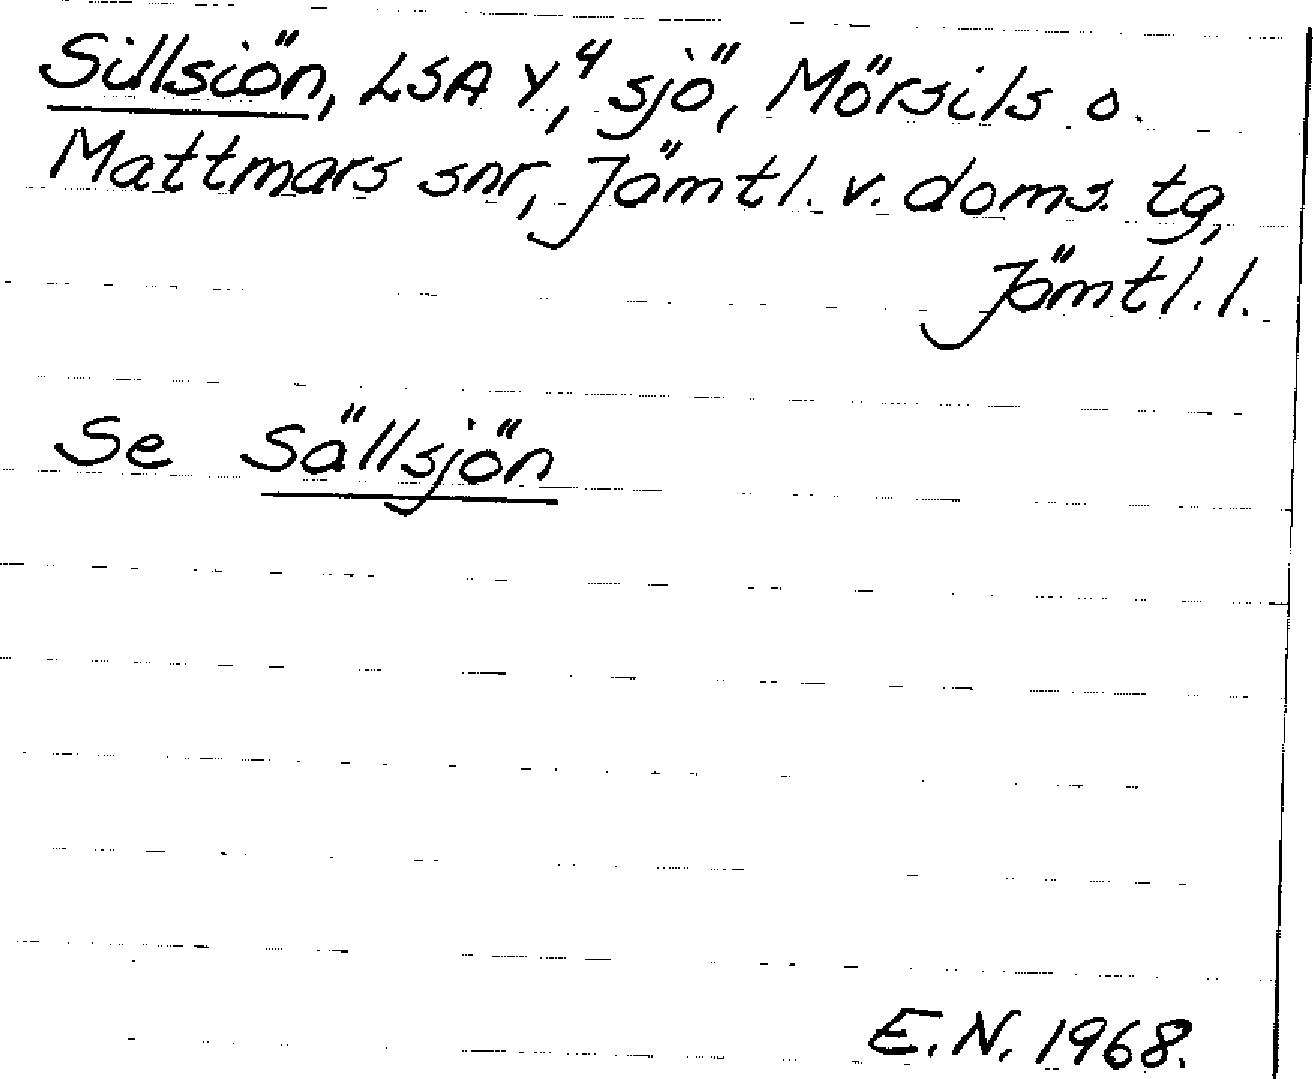 Sillsiön, LSA Y⁴, sjö, Mörsils o.
Mattmars snr, Jämtl. v. doms. tg,
Jämtl. l.
Se Sällsjön
E.N. 1968.